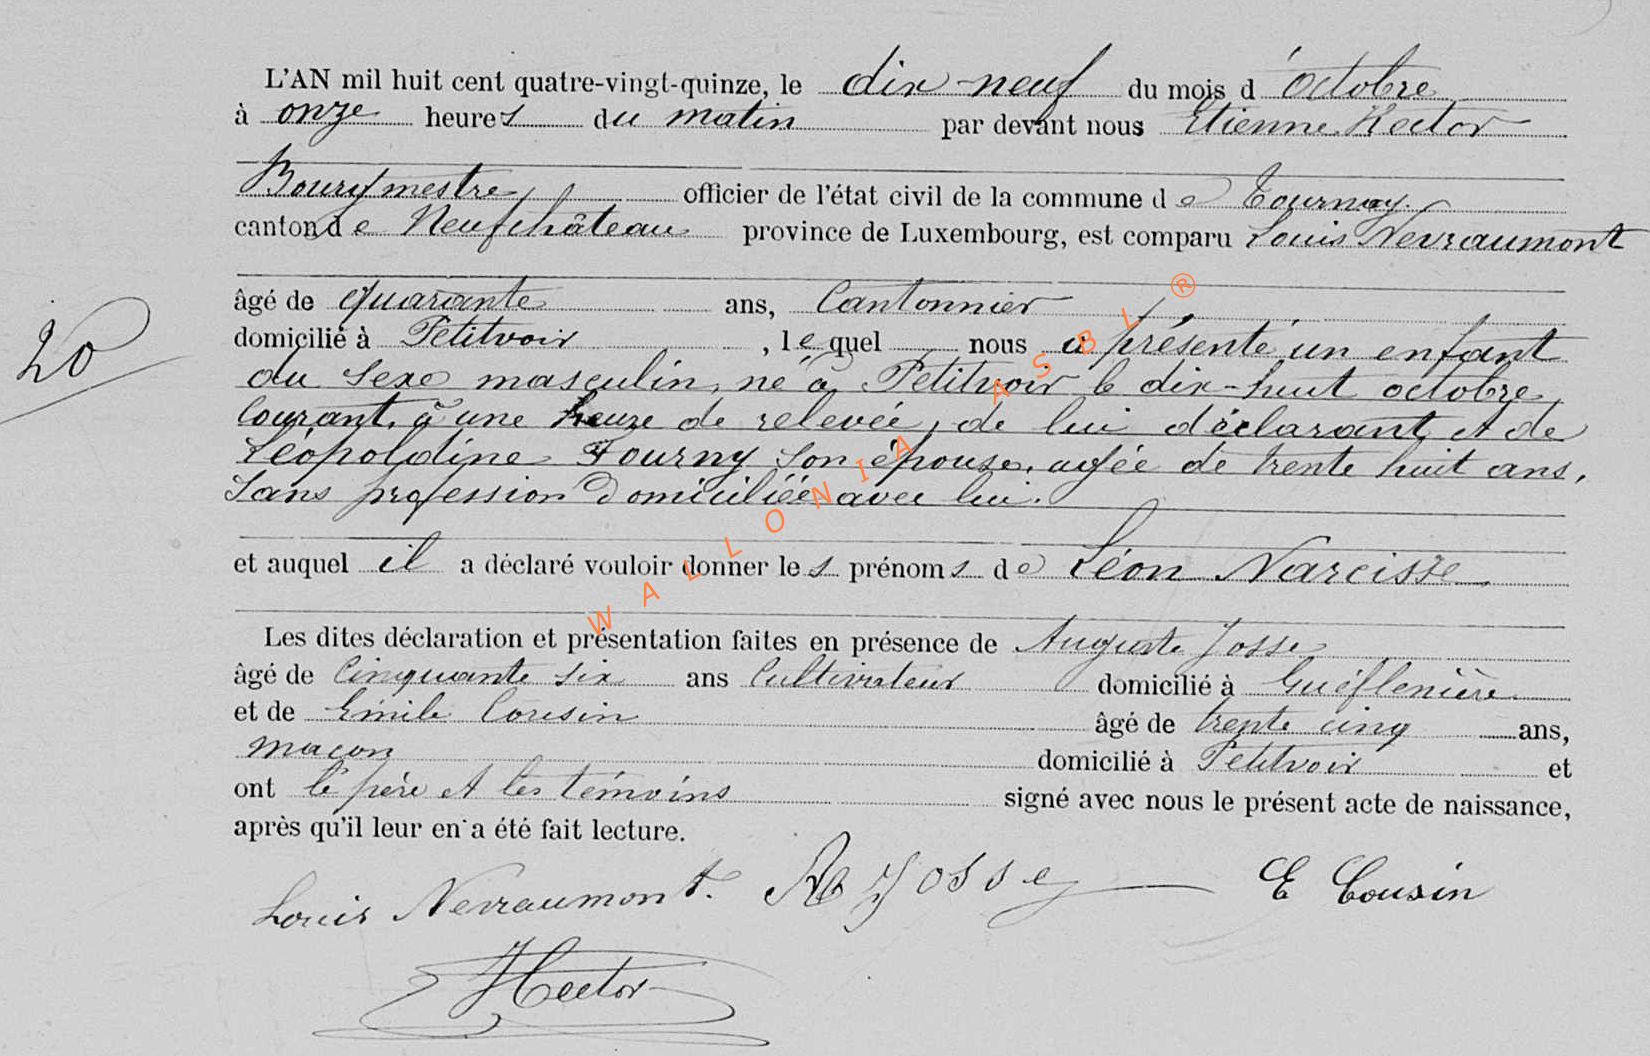 L'AN mil huit cent quatre-vingt-quinze, le dix-neuf du mois d'octobre
à onze heures du matin par devant nous Etienne Hector
Bourgmestre officier de l'état civil de la commune de Tournay.
canton de Neufchâteau province de Luxembourg, est comparu Louis Nevraumont
âgé de quarante ans, Cantonnier
domicilié à Petitvoir, lequel nous a présenté un enfant
20
du sexe masculin, né à Petitvoir le dix-huit octobre
courant, à une heure de relevée, de lui déclarant et de
Léopoldine Fourny son épouse, agée de trente huit ans,
sans profession domiciliée avec lui.
et auquel il a déclaré vouloir donner les prénoms de Léon Narcisse
Les dites déclaration et présentation faites en présence de Auguste Josse
âgé de cinquante six ans Cultivateur domicilié à
et de Emile Cousin âgé de trente cinq ans,
maçon domicilié à Petitvoir et
ont le père et les témoins signé avec nous le présent acte de naissance,
après qu'il leur en a été fait lecture.
Louis Nevraumont. A Josse E Cousin
Hector
WALLONIA ASBL ®